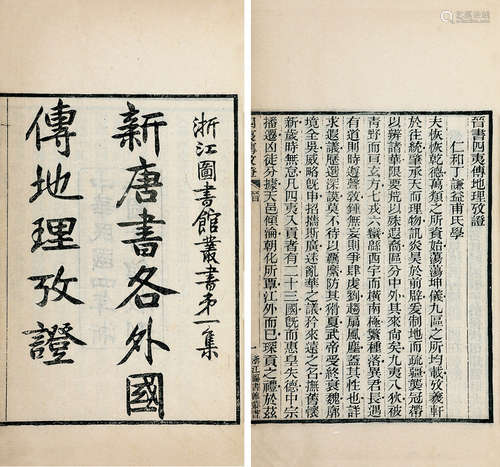 浙江圖書館叢書弟一集
新唐書各外國
傳地理攷證
晉書四夷傳地理攷證
仁和丁謙益甫氏學
夫恢恢乾德萬類之所資始蕩蕩坤儀九區之所均載攷羲軒
於往統肇承天而理物訊炎昊於前辟爰制地而疏疆襲冠帶
以辨諸華限要荒以殊遐裔區分中外其來尙矣九夷八狄被
青野而亘玄方七戎六蠻緜西宇而橫南極繁種落異君長遇
有道則時遵聲敎鍾無妄則爭肆虔劉趨扇風塵蓋其性也詳
求遐議歷選深謨莫不待以羈縻防其猾夏武帝受終衰魏廓
境全吳威略旣申招攜斯廣迷亂華之議矜來遠之名撫舊懷
新歲時無怠凡四夷入貢者有二十三國旣而惠皇失德中宗
播遷凶徒分據天邑傾淪朝化所覃江外而已琛貢之禮於茲